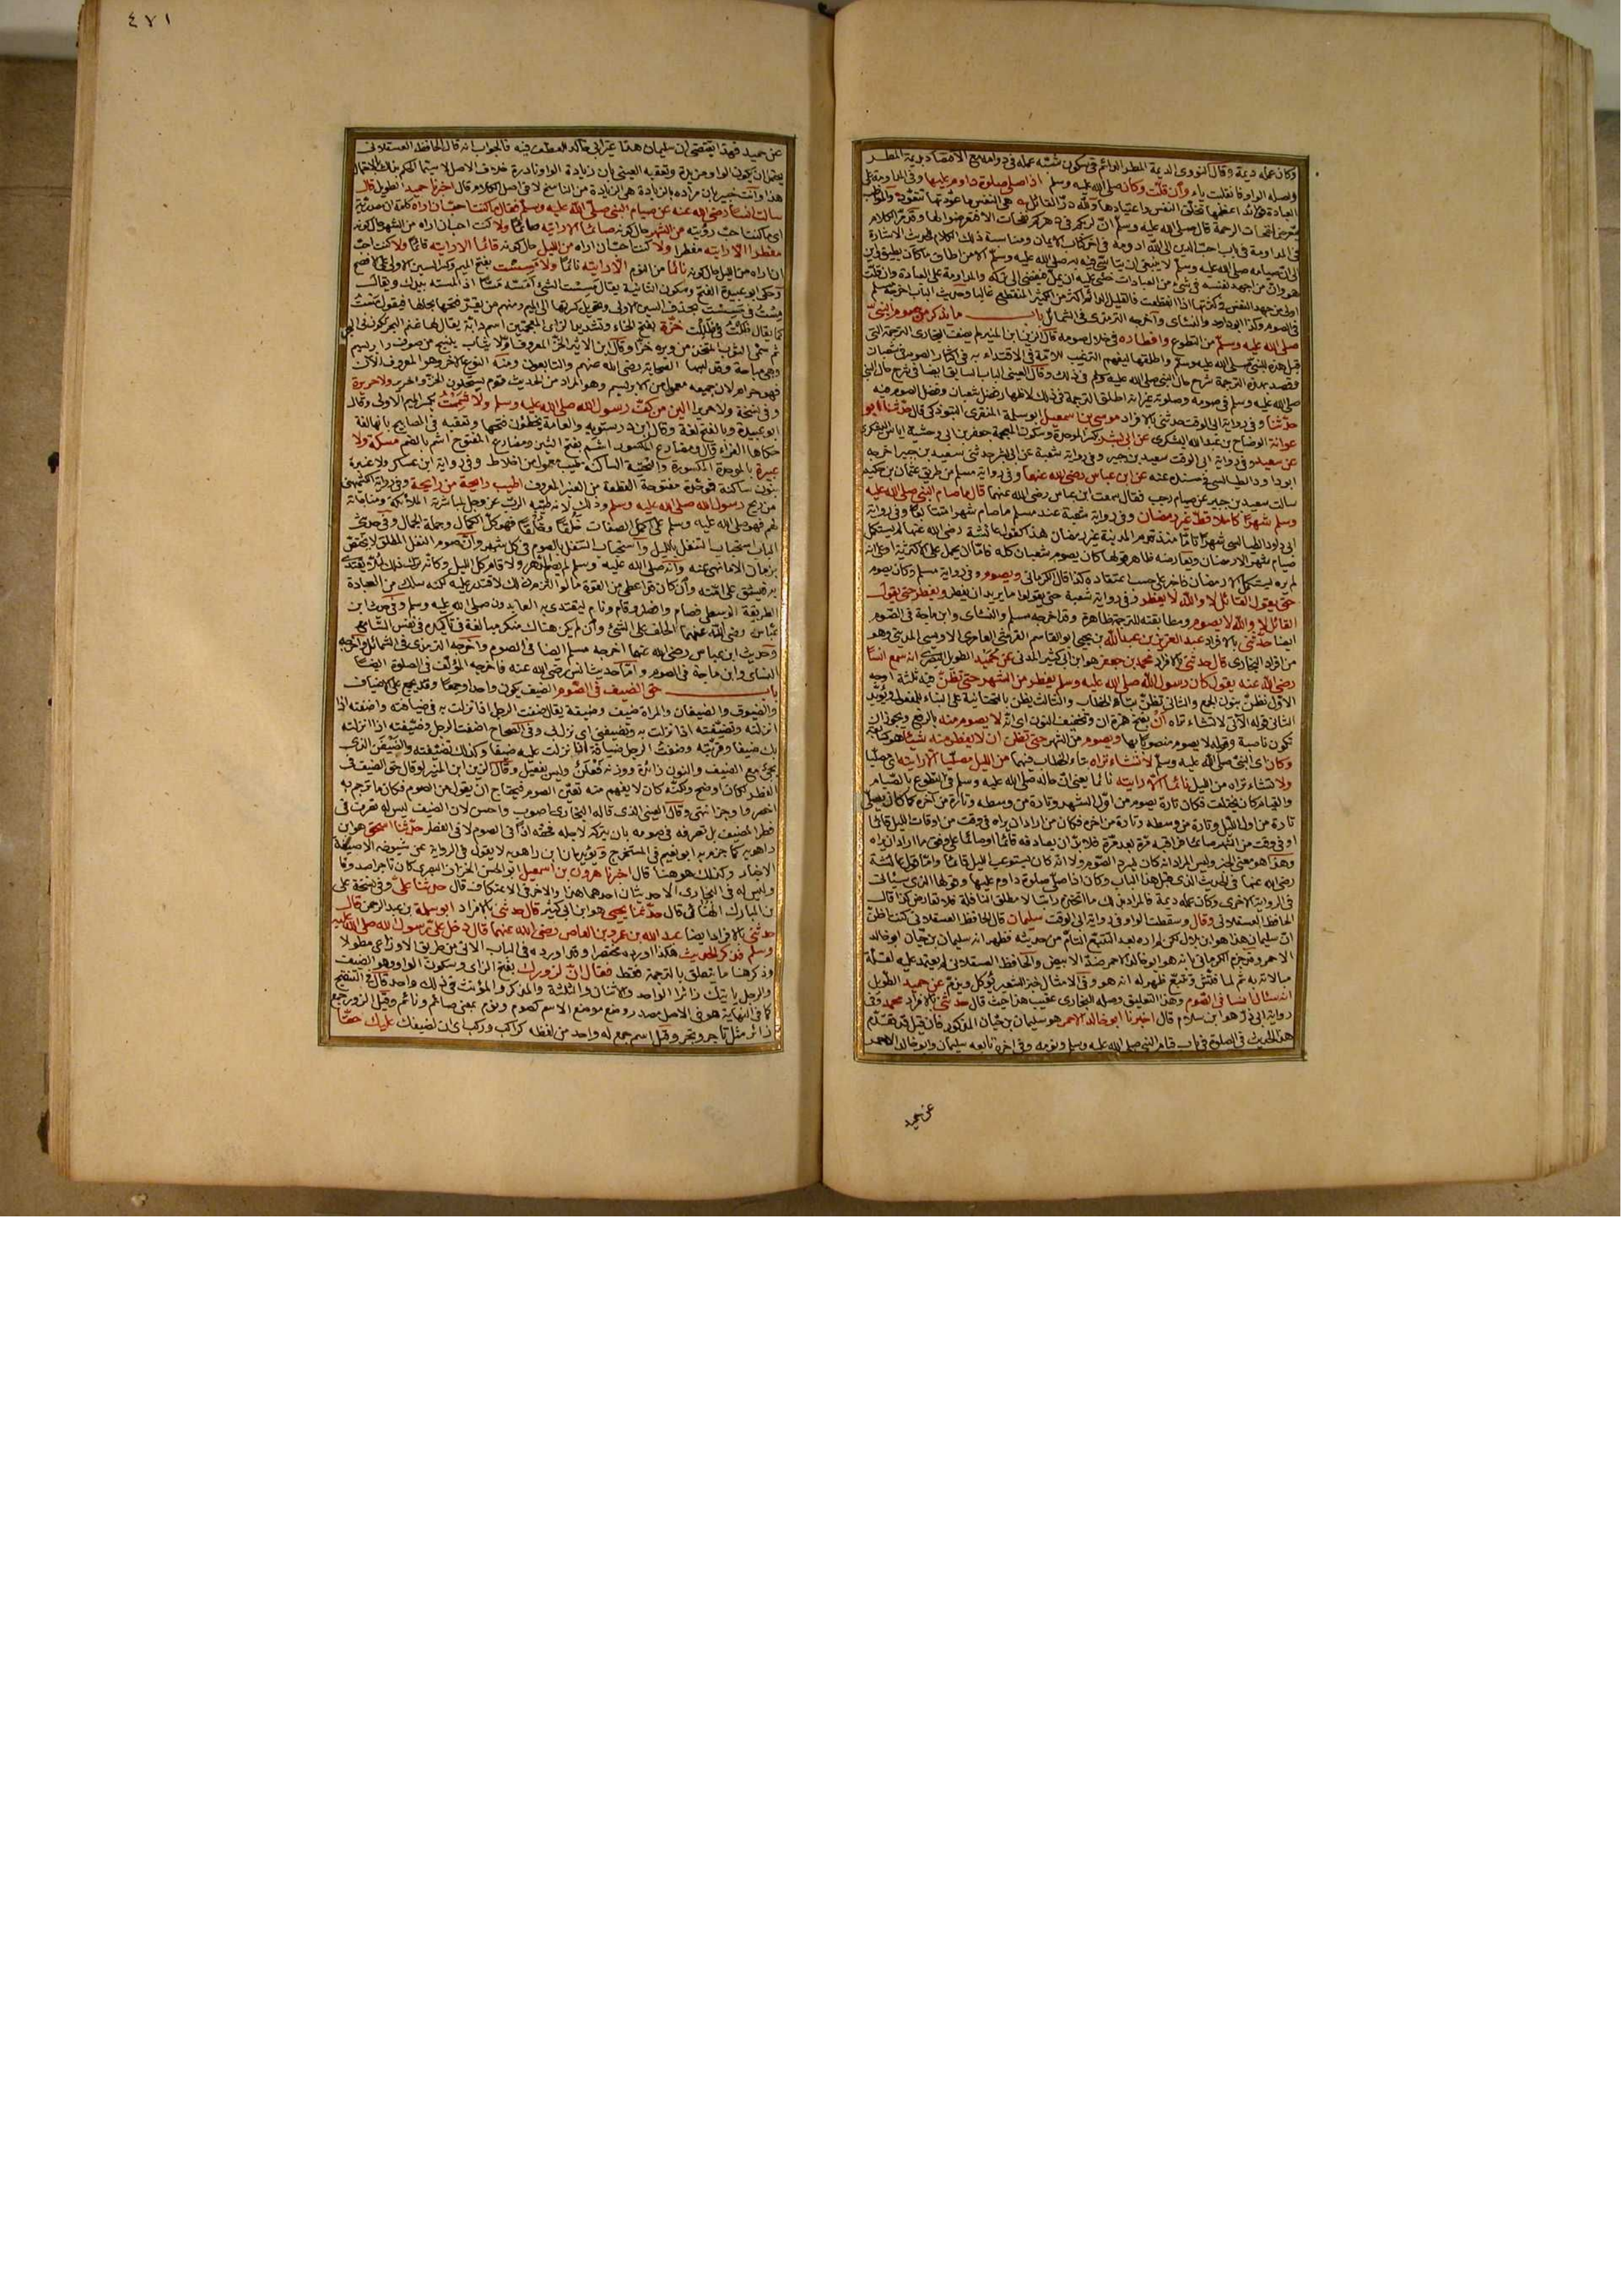 وكان عمله ديمة وقال النووى الديمة المطر الدائم فى سكون شبه عمله فى دوامه مع الاقتصاد بديمة المطر
واصله الواو فانقلبت ياء وان قلت وكان صلى الله عليه وسلم اذا صلى صلوة داوم عليها وفى المداومة على
العبادة فوائد اعظمها تخلق النفس واعتيادها ولله در القائل هى النفس ما عودتها تتعود والمواظب
يتعرض لنفحات الرحمة قال صلى الله عليه وسلم ان لربكم فى دهركم نفحات الا فتعرضوا لها وقد مر الكلام
فى المداومة فى باب احب الدين الى الله ادومه فى آخر كتاب الايمان ومناسبة ذلك الكلام للحديث الاشارة
الى ان صيامه صلى الله عليه وسلم لا ينبغى ان يتأسى فيه به صلى الله عليه وسلم الا من اطاق ما كان يطيق
هو وان من اجهد نفسه فى شئ من العبادات خشى عليه ان يمل فيفضى الى تركه والمداومة على العبادة وان قلت
اولى من جهد النفس فى كثرتها اذا انقطعت فالقليل الدائم اكثر من الكثير المنقطع غالبا وحديث الباب اخرجه مسلم
فى الصوم وكذا ابو داود والنسائى واخرجه الترمذى فى الشمائل باب ما يذكر من صوم النبى
صلى الله عليه وسلم من التطوع وافطاره فى خلال صومه قال الزين ابن المنير لم يضف البخارى الترجمة التى
قبل هذه للنبى صلى الله عليه وسلم واطلقها ليفهم الترغيب للامة فى الاقتداء به فى اكثار الصوم فى شعبان
وقصد بهذه الترجمة شرح حال النبى صلى الله عليه وسلم فى ذلك وقال العينى الباب السابق ايضا فى شرح حال النبى
صلى الله عليه وسلم فى صومه وصلوته غير انه اطلق الترجمة فى ذلك لاظهار فضل شعبان وفضل الصوم فيه
حدثنا وفى رواية ابى الوقت حدثنى بالافراد موسى بن اسمعيل ابو سلمة المنقرى التبوذكى قال حدثنا ابو
عوانة الوضاح بن عبد الله اليشكرى عن ابى بشر بكسر الموحدة وسكون المعجمة جعفر بن ابى وحشية اياس اليشكرى
عن سعيد وفى رواية ابى الوقت سعيد بن جبير وفى رواية شعبة عن ابى بشر حدثنى سعيد بن جبير اخرجه
ابو داود الطيالسى فى مسنده عنه عن ابن عباس رضى الله عنهما وفى رواية مسلم من طريق عثمان بن حكيم
سالت سعيد بن جبير عن صيام رجب فقال سمعت ابن عباس رضى الله عنهما قال ما صام النبى صلى الله عليه
وسلم شهرا كاملا قط غير رمضان وفى رواية شعبة عند مسلم ما صام شهرا متتابعا وفى رواية
ابى داود الطيالسى شهرا تاما منذ قدم المدينة غير رمضان هذا كقول عائشة رضى الله عنها لم يستكمل
صيام شهر الا رمضان ويعارضه ظاهر قولها كان يصوم شعبان كله فاما ان يحمل على الاكثرية او على انه
لم يره يستكمل الا رمضان فاخبر على حسب اعتقاده كذا قال الكرمانى ويصوم وفى رواية مسلم وكان يصوم
حتى يقول القائل لا والله لا يفطر وفى رواية شعبة حتى يقولوا ما يريد ان يفطر ويفطر حتى يقول
القائل لا والله لا يصوم ومطابقته للترجمة ظاهرة وقد اخرجه مسلم والنسائى وابن ماجة فى الصوم
ايضا حدثنى بالافراد عبد العزيز بن عبد الله بن يحيى ابو القاسم القرشى العامرى الاويسى المدنى وهو
من افراد البخارى قال حدثنى بالافراد محمد بن جعفر هو ابن ابى كثير المدنى عن حميد الطويل البصرى انه سمع انسا
رضى الله عنه يقول كان رسول الله صلى الله عليه وسلم يفطر من الشهر حتى نظن فيه ثلثة اوجه
الاول نظن بنون الجمع والثانى تظن بتاء الخطاب والثالث يظن بالتحتانية على البناء للمفعول ويؤيد
الثانى قوله الآتى لا تشاء تراه ان بفتح همزة ان وتخفيف النون اى انه لا يصوم منه بالرفع ويجوز ان
تكون ناصبة وقوله لا يصوم منصوبا بها ويصوم من الشهر حتى نظن ان لا يفطر منه شيئا
وكان اى النبى صلى الله عليه وسلم لا تشاء تراه بتاء الخطاب فيهما من الليل مصليا الا رايته اى مصليا
ولا تشاء تراه من الليل نائما الا رايته نائما يعنى ان حاله صلى الله عليه وسلم فى التطوع بالصيام
والقيام كان يختلف فكان تارة يصوم من اول الشهر وتارة من وسطه وتارة من آخره كما كان يصلى
تارة من اول الليل وتارة من وسطه وتارة من اخره فكان من اراد ان يراه فى وقت من اوقات الليل قائما
او فى وقت من الشهر صائما فراقبه مرة بعد مرة فلا بد ان يصادفه قائما او صائما على وفق ما اراد ان يراه
وهذا هو معنى الخبر وليس المراد انه كان يسرد الصوم ولا انه كان يستوعب الليل قائما واما قول عائشة
رضى الله عنها فى الحديث الذى قبل هذا الباب وكان اذا صلى صلوة داوم عليها وقولها الذى سيأتى
فى الرواية الاخرى وكان عمله ديمة فالمراد بذلك ما اتخذه راتبا لا مطلق النافلة فلا تعارض كذا قال
الحافظ العسقلانى وقال وسقطت الواو فى رواية ابى الوقت سليمان قال الحافظ العسقلانى كنت اظن
ان سليمان هذا هو ابن بلال لكن لم اره بعد التتبع التام من حديثه فظهر انه سليمان بن حيان ابو خالد
الاحمر وجزم الكرمانى بانه هو ابو خالد الاحمر ضد الابيض والحافظ العسقلانى لم يعتمد عليه لقلة
مبالاته به ثم لما فتش وتتبع ظهر له انه هو وفى الامثال خبز الشعير يؤكل ويذم عن حميد الطويل
انه سئال انسا فى الصوم وهذا التعليق وصله البخارى عقيب هذا حيث قال حدثنى بالافراد محمد وفى
رواية ابى ذر هو ابن سلام قال اخبرنا ابو خالد الاحمر هو سليمان بن حيان المذكور فان قيل قد تقدم
هذا الحديث فى الصلوة فى باب قيام النبى صلى الله عليه وسلم ونومه وفى اخره تابعه سليمان وابو خالد الاحمر
عن حميد
٤٧١
عن حميد فهذا يقتضى ان سليمان هذا غير ابى خالد للعطف فيه فالجواب انه قال الحافظ العسقلانى
يحتمل ان يكون الواو مزيدة وتعقبه العينى بان زيادة الواو نادرة خلاف الاصل لا سيما الحكم بذلك بالاحتمال
هذا وانت خبير بان مراده بالزيادة هى الزيادة من الناسخ لا فى اصل الكلام قال اخبرنا حميد الطويل قال
سالت انسا رضى الله عنه عن صيام النبى صلى الله عليه وسلم فقال ما كنت احب ان اراه كلمة ان مصدرية
اى ما كنت احب رؤيته من الشهر حال كونه صائما الا رايته صائما ولا كنت احب ان اراه من الشهر حال كونه
مفطرا الا رايته مفطرا ولا كنت احب ان اراه من الليل حال كونه قائما الا رايته قائما ولا كنت احب
ان اراه من الليل حال كونه نائما من النوم الا رايته نائما ولا مسست بفتح الميم وكسر السين الاولى على الافصح
وحكى ابو عبيدة الفتح وسكون الثانية يقال مسست الشئ امسه مسا اذا لمسته بيدك ويقال
مست فى مسست بحذف السين الاولى وتحويل كسرتها الى الميم ومنهم من يقر فتحها بحالها فيقول مست
كما يقال ظلت فى ظللت خزة بفتح الخاء وتشديد الزاى المعجمتين اسم دابة
ثم سمى الثوب المتخذ من وبره خزا وقال ابن الاثير الخز المعروف اولا ثياب ينسج من صوف وابريسم
وهى مباحة وقد لبسها الصحابة رضى الله عنهم والتابعون ومنه النوع الاخر وهو المعروف الآن
فهو حرام لان جميعه معمول من الابريسم وهو المراد من الحديث قوم يستحلون الخز والحرير ولا حريرة
وفى نسخة ولا حريرا الين من كف رسول الله صلى الله عليه وسلم ولا شممت بكسر الميم الاولى وقال
ابو عبيدة وبالفتح لغة وقال ابن درستويه والعامة يخطئون فتحها وتعقبه فى المصابيح بانها لغة
حكاها الفراء قال ومضارع المكسور اشم بفتح الشين ومضارع المفتوح اشم بالضم مسكة ولا
عبيرة بالموحدة المكسورة والتحتية الساكنة طيب معمول من اخلاط وفى رواية ابن عساكر ولا عنبرة
بنون ساكنة فموحدة مفتوحة القطعة من العنبر المعروف اطيب رائحة من رائحة وفى رواية الكشميهنى
من ريح رسول الله صلى الله عليه وسلم وذلك لانه طيبه الرب عز وجل لمباشرته الملائكة ومناجاته
لهم فهو صلى الله عليه وسلم على اكمل الصفات خلقا وخلقا فهو كل الكمال وجملة الجمال وفى حديث
الباب استحباب التنفل بالليل واستحباب التنفل بالصوم فى كل شهر وان صوم النفل المطلق لا يختص
بزمان الا ما نهى عنه وانه صلى الله عليه وسلم لم يصم الدهر ولا قام كل الليل وكأنه ترك ذلك لئلا يقتدى
به فيشق على امته وان كان قد اعطى من القوة ما لو التزم ذلك لاقتدر عليه لكنه سلك من العبادة
الطريقة الوسطى فصام وافطر وقام ونام ليقتدى به العابدون صلى الله عليه وسلم وفى حديث ابن
عباس رضى الله عنهما الحلف على الشئ وان لم يكن هناك منكر مبالغة فى تأكيده فى نفس السامع
وحديث ابن عباس رضى الله عنهما اخرجه مسلم ايضا فى الصوم واخرجه الترمذى فى الشمائل واخرجه
النسائى وابن ماجة فى الصوم واما حديث انس رضى الله عنه فاخرجه المؤلف فى الصلوة ايضا
باب حق الضيف فى الصوم الضيف يكون واحدا وجمعا وقد يجمع على الاضياف
والضيوف والضيفان والمراة ضيف وضيفة يقال ضفت الرجل اذا نزلت به فى ضيافته واضفته اذا
انزلته وتضيفته اذا نزلت به وتضيفنى اى نزل بى وفى الصحاح اضفت الرجل وضيفته اذا انزلته
بك ضيفا وقريته وضفت الرجل ضيافة اذا نزلت عليه ضيفا وكذلك تضيفته والضيفن الذى
يجئ مع الضيف والنون زائدة ووزنه فعلن وليس بفيعل وقال الزين ابن المنير لو قال حق الضيف فى
الفطر لكان اوضح ولكنه كان لا يفهم منه تعين الصوم فيحتاج ان يقول من الصوم فكان ما ترجم به
اخصر واوجز انتهى وقال العينى الذى قاله البخارى اصوب واحسن لان الضيف ليس له تصرف فى
فطر المضيف بل تصرفه فى صومه بان يتركه لاجله فحقه اذا فى الصوم لا فى الفطر حدثنا اسحق هو ابن
راهويه كما جزم به ابو نعيم فى المستخرج ويؤيده ان ابن راهويه لا يقول فى الرواية عن شيوخه الا صيغة
الاخبار وكذلك هو هنا قال اخبرنا هرون بن اسمعيل ابو الحسن الخزاز البصرى كان تاجرا صدوقا
وليس له فى البخارى الا حديثان احدهما هذا والاخر فى الاعتكاف قال حدثنا على وفى نسخة على
بن المبارك الهنائى قال حدثنا يحيى هو ابن ابى كثير قال حدثنى بالافراد ابو سلمة بن عبد الرحمن قال
حدثنى بالافراد ايضا عبد الله بن عمرو بن العاص رضى الله عنهما قال دخل على رسول الله صلى الله عليه
وسلم فذكر الحديث هكذا اورده مختصرا وقد اورده فى الباب الاتى من طريق الاوزاعى مطولا
وذكر هنا ما يتعلق بالترجمة فقط فقال ان لزورك بفتح الزاى وسكون الواو وهو الضيف
والرجل ياتيك زائرا الواحد والاثنان والثلثة والمذكر والمؤنث فى ذلك واحد قال فى التنقيح
كما فى النهاية هو فى الاصل مصدر وضع موضع الاسم كصوم ونوم بمعنى صائم ونائم وقيل الزور جمع
زائر مثل تاجر وتجر وقيل اسم جمع له واحد من لفظه كراكب وركب اى ان لضيفك عليك حقا